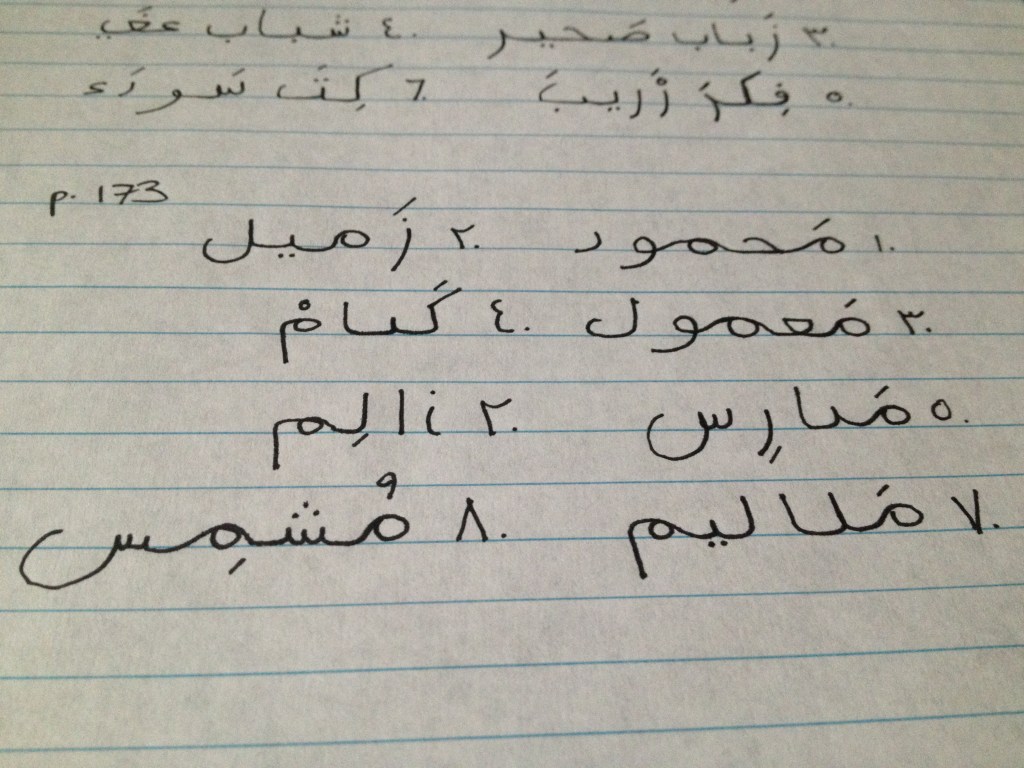 ٣. زَباب صَحير ٤. شباب عقَب
٥. فِكرَ زْرَيبَ ٦. كِتَب سَورَء
p. 173
١. مَحمود ٢. زَميل
٣. مَعمول ٤. كَمامْ
٥. مَدارِس ٢. نالِم
٧. مَلاليم ٨. مُشمِس